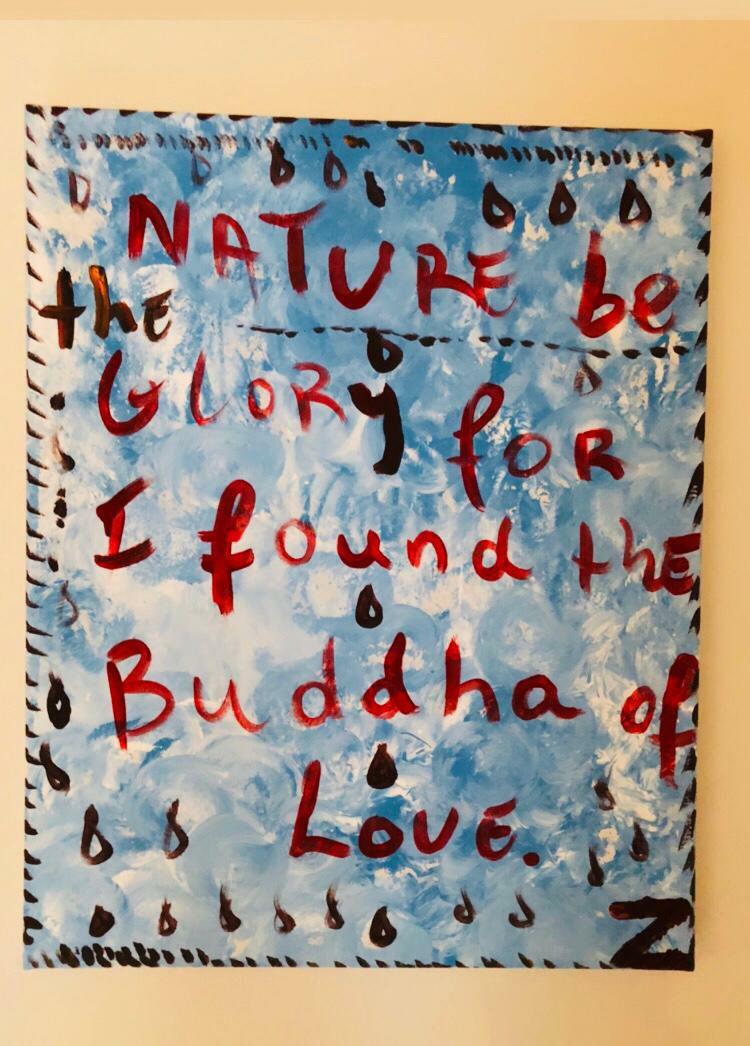 NATURE be
the
GLORY for
I found the
Buddha of
LOVE.
N